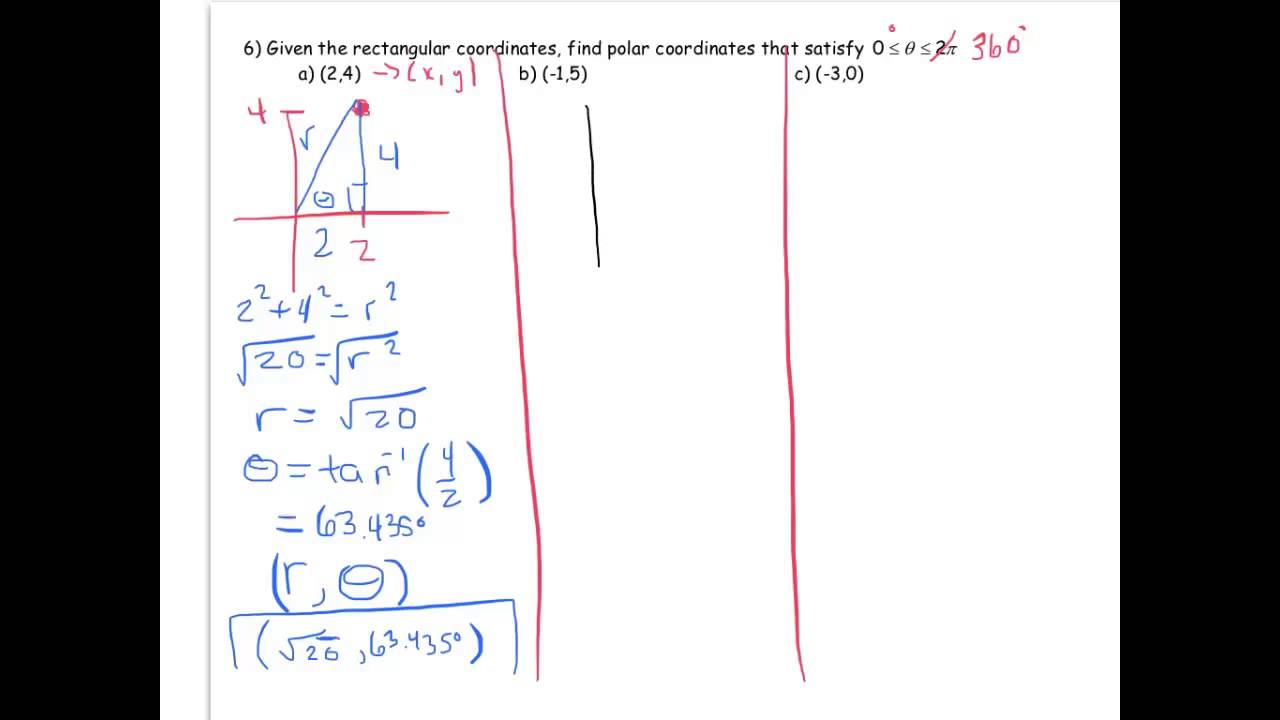 6) Given the rectangular coordinates, find polar coordinates that satisfy 0° ≤ θ ≤ 2π 360°
a) (2,4) → (x, y)
b) (-1,5)
c) (-3,0)
4
r
4
θ
2
2
2² + 4² = r²
√20 = √r²
r = √20
θ = tan⁻¹ (4/2)
= 63.435°
(r, θ)
(√20, 63.435°)